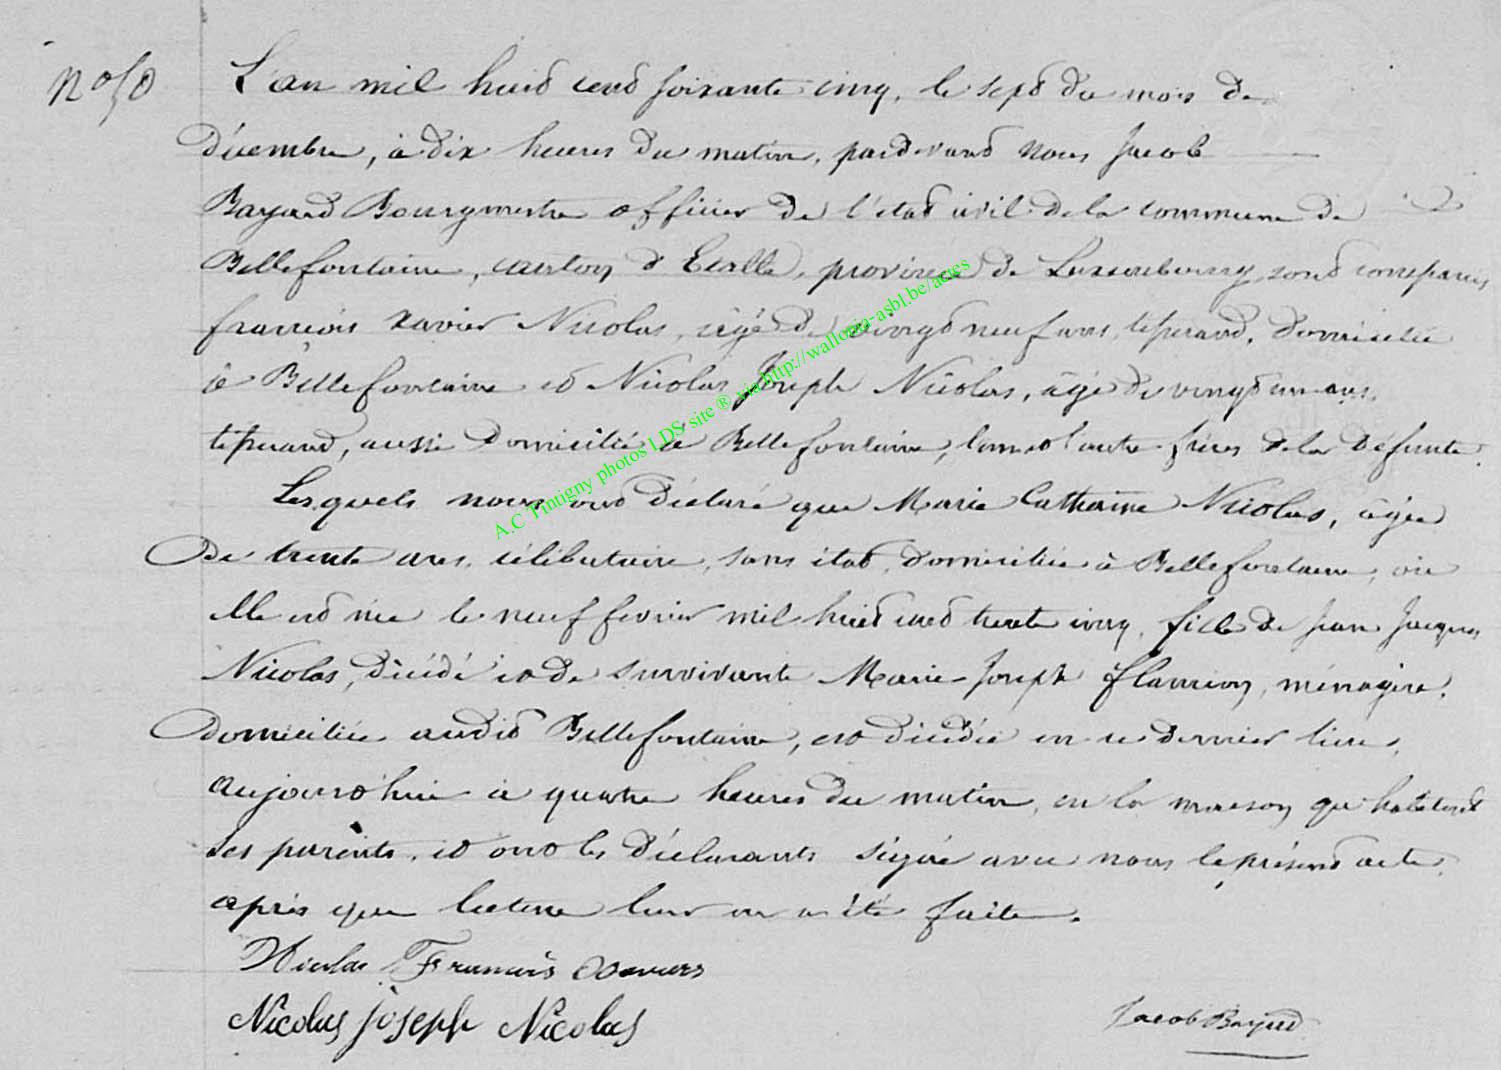 N° 50
L'an mil huit cent soixante cinq, le sept du mois de
Décembre, à dix heures du matin, pardevant nous Jacob
Bayard Bourgmestre officier de l'état civil de la commune de
Bellefontaine, canton d'Etalle, province de Luxembourg, sont comparus
françois xavier Nicolas, âgé de vingt neuf ans, tisserand, domicilié
à Bellefontaine et Nicolas Joseph Nicolas, âgé de vingt un ans,
tisserand, aussi domicilié à Bellefontaine, l'un et l'autre frères de la défunte.
Lesquels nous ont déclaré que Marie Catherine Nicolas, âgée
de trente ans, célibataire, sans état, domiciliée à Bellefontaine, où
elle est née le neuf fevrier mil huit cent trente cinq, fille de jean Jacques
Nicolas, décédé et de survivante Marie-Joseph flamion, ménagère,
domiciliée audit Bellefontaine, est décédée en ce dernier lieu,
aujourd'hui à quatre heures du matin, en la maison qu'habitent
ses parents, et ont les déclarants signé avec nous le présent acte,
après que lecture leur en a été faite.
Nicolas François Xaviers
Nicolas joseph Nicolas
Jacob Bayard
A.C Tintigny photos LDS site ® via http://wallonia-asbl.be/actes